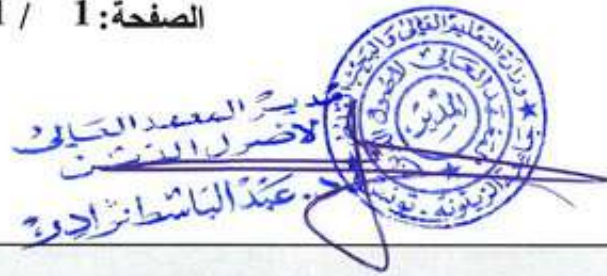 الصفحة: 1 / 1
مدير المعهد العالي
لأصول الدين
د. عبد الباسط
وزارة التعليم العالي و البحث
المعهد العالي لأصول
المدير
الزيتونة - تونس